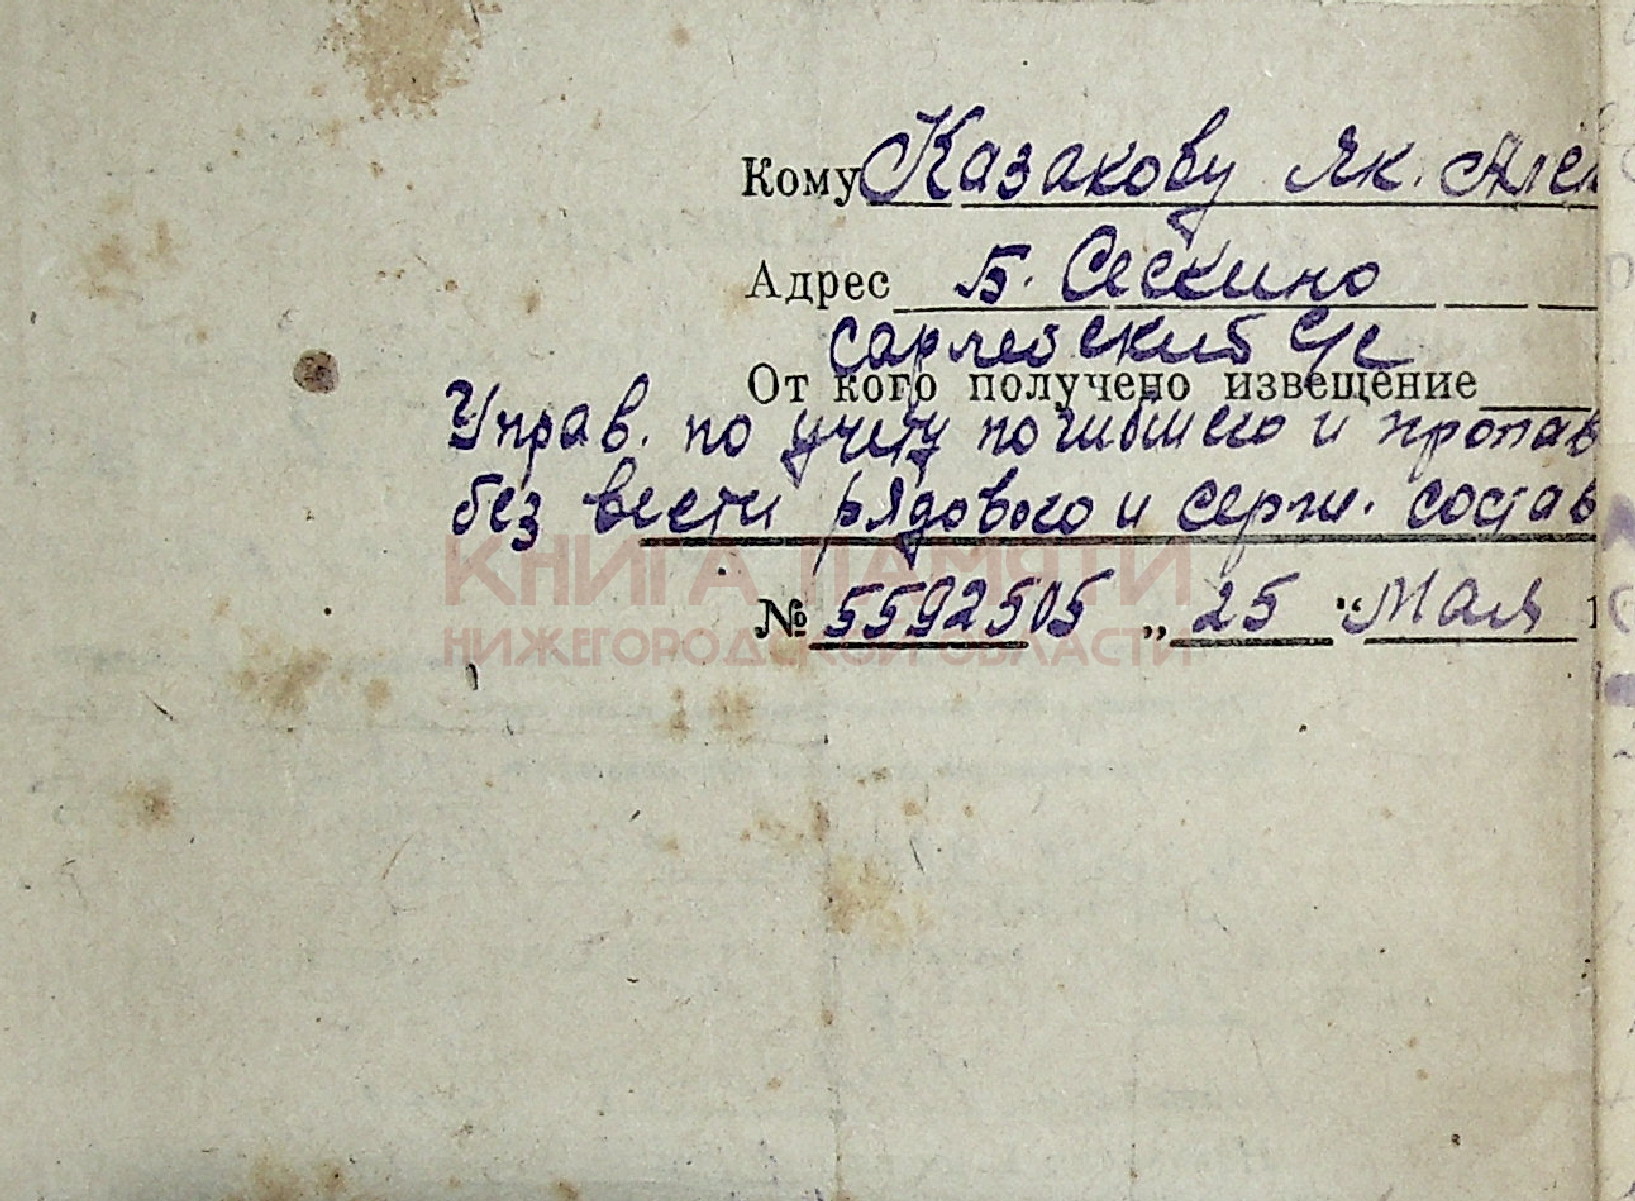 Кому Казакову Як. Алек
Адрес Б. Сескино
Сарлейский с/с
От кого получено извещение
Управ. по учету погибшего и пропав
без вести рядового и серж. состав
КНИГА ПАМЯТИ
№ 5592505 „ 25 “ Мая 1
НИЖЕГОРОДСКОЙ ОБЛАСТИ